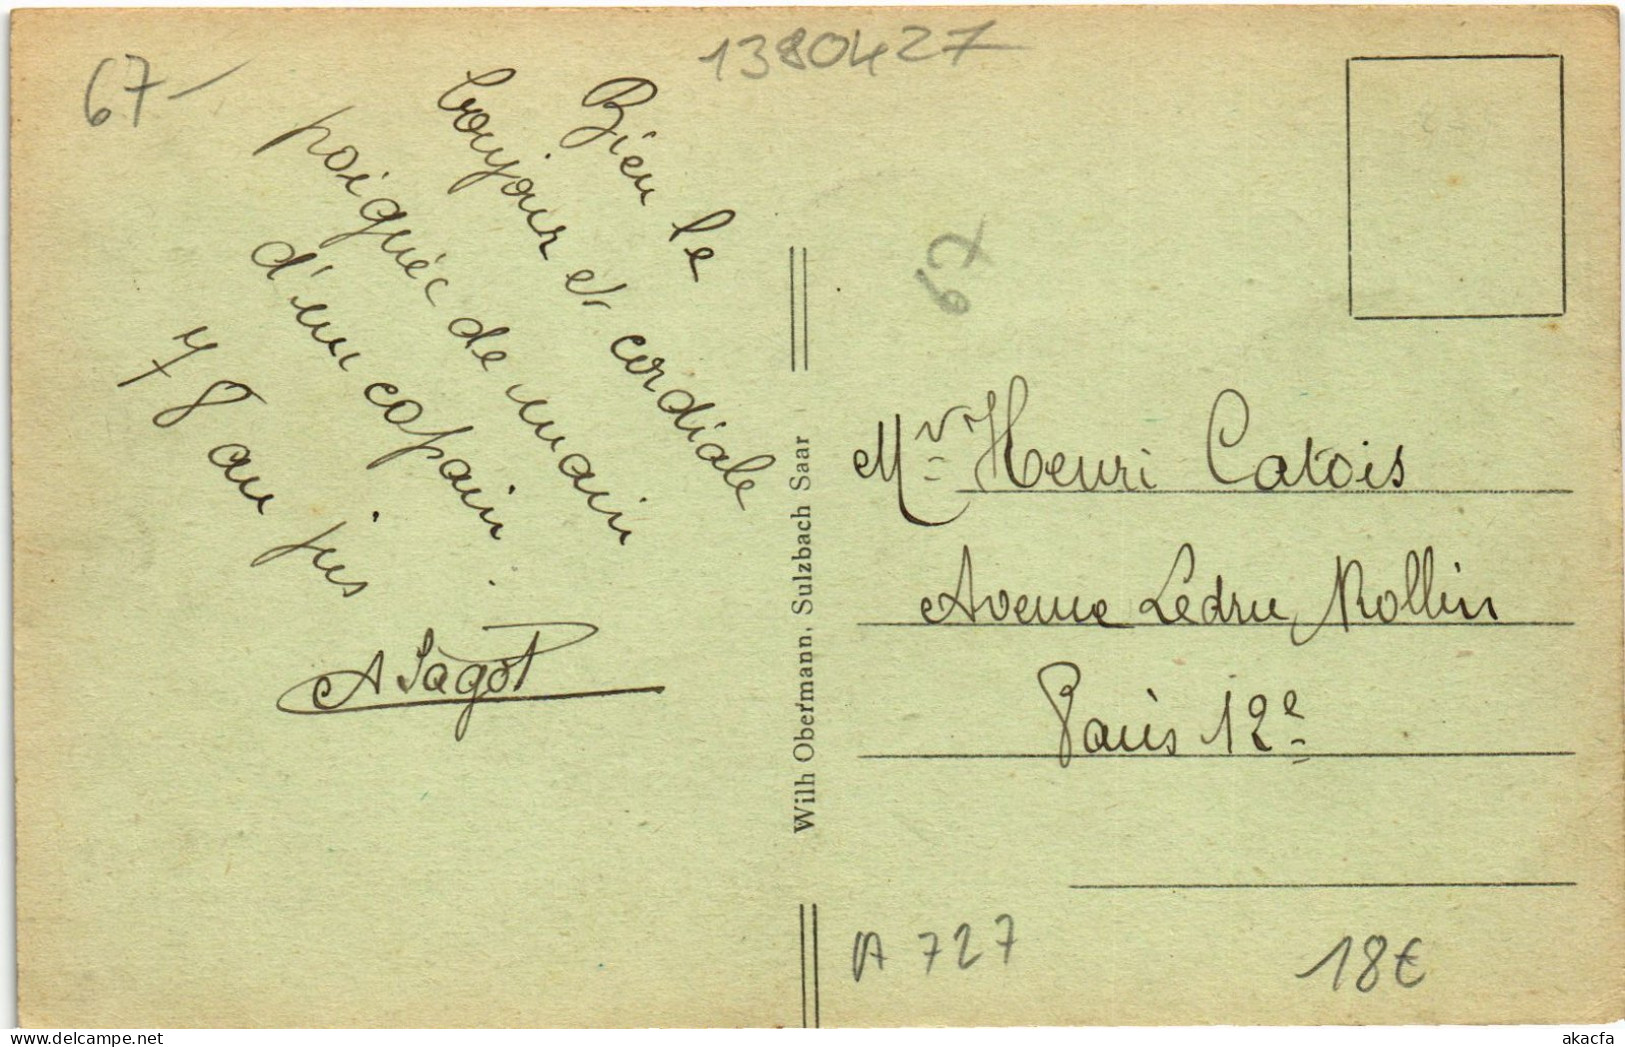 67-
1380427
Bien le
bonjour et cordiale
poignée de main
d'un copain.
78 au jus
A Sagot
Wilh Obermann, Sulzbach Saar
67
Mr Henri Catois
Avenue Ledru Rollin
Paris 12e
A 727
18€
akacfa